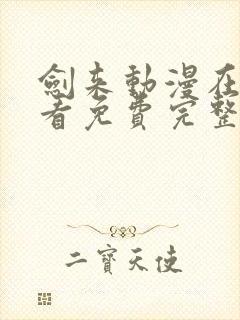 劍來動漫在
看免費完整
二寶天使